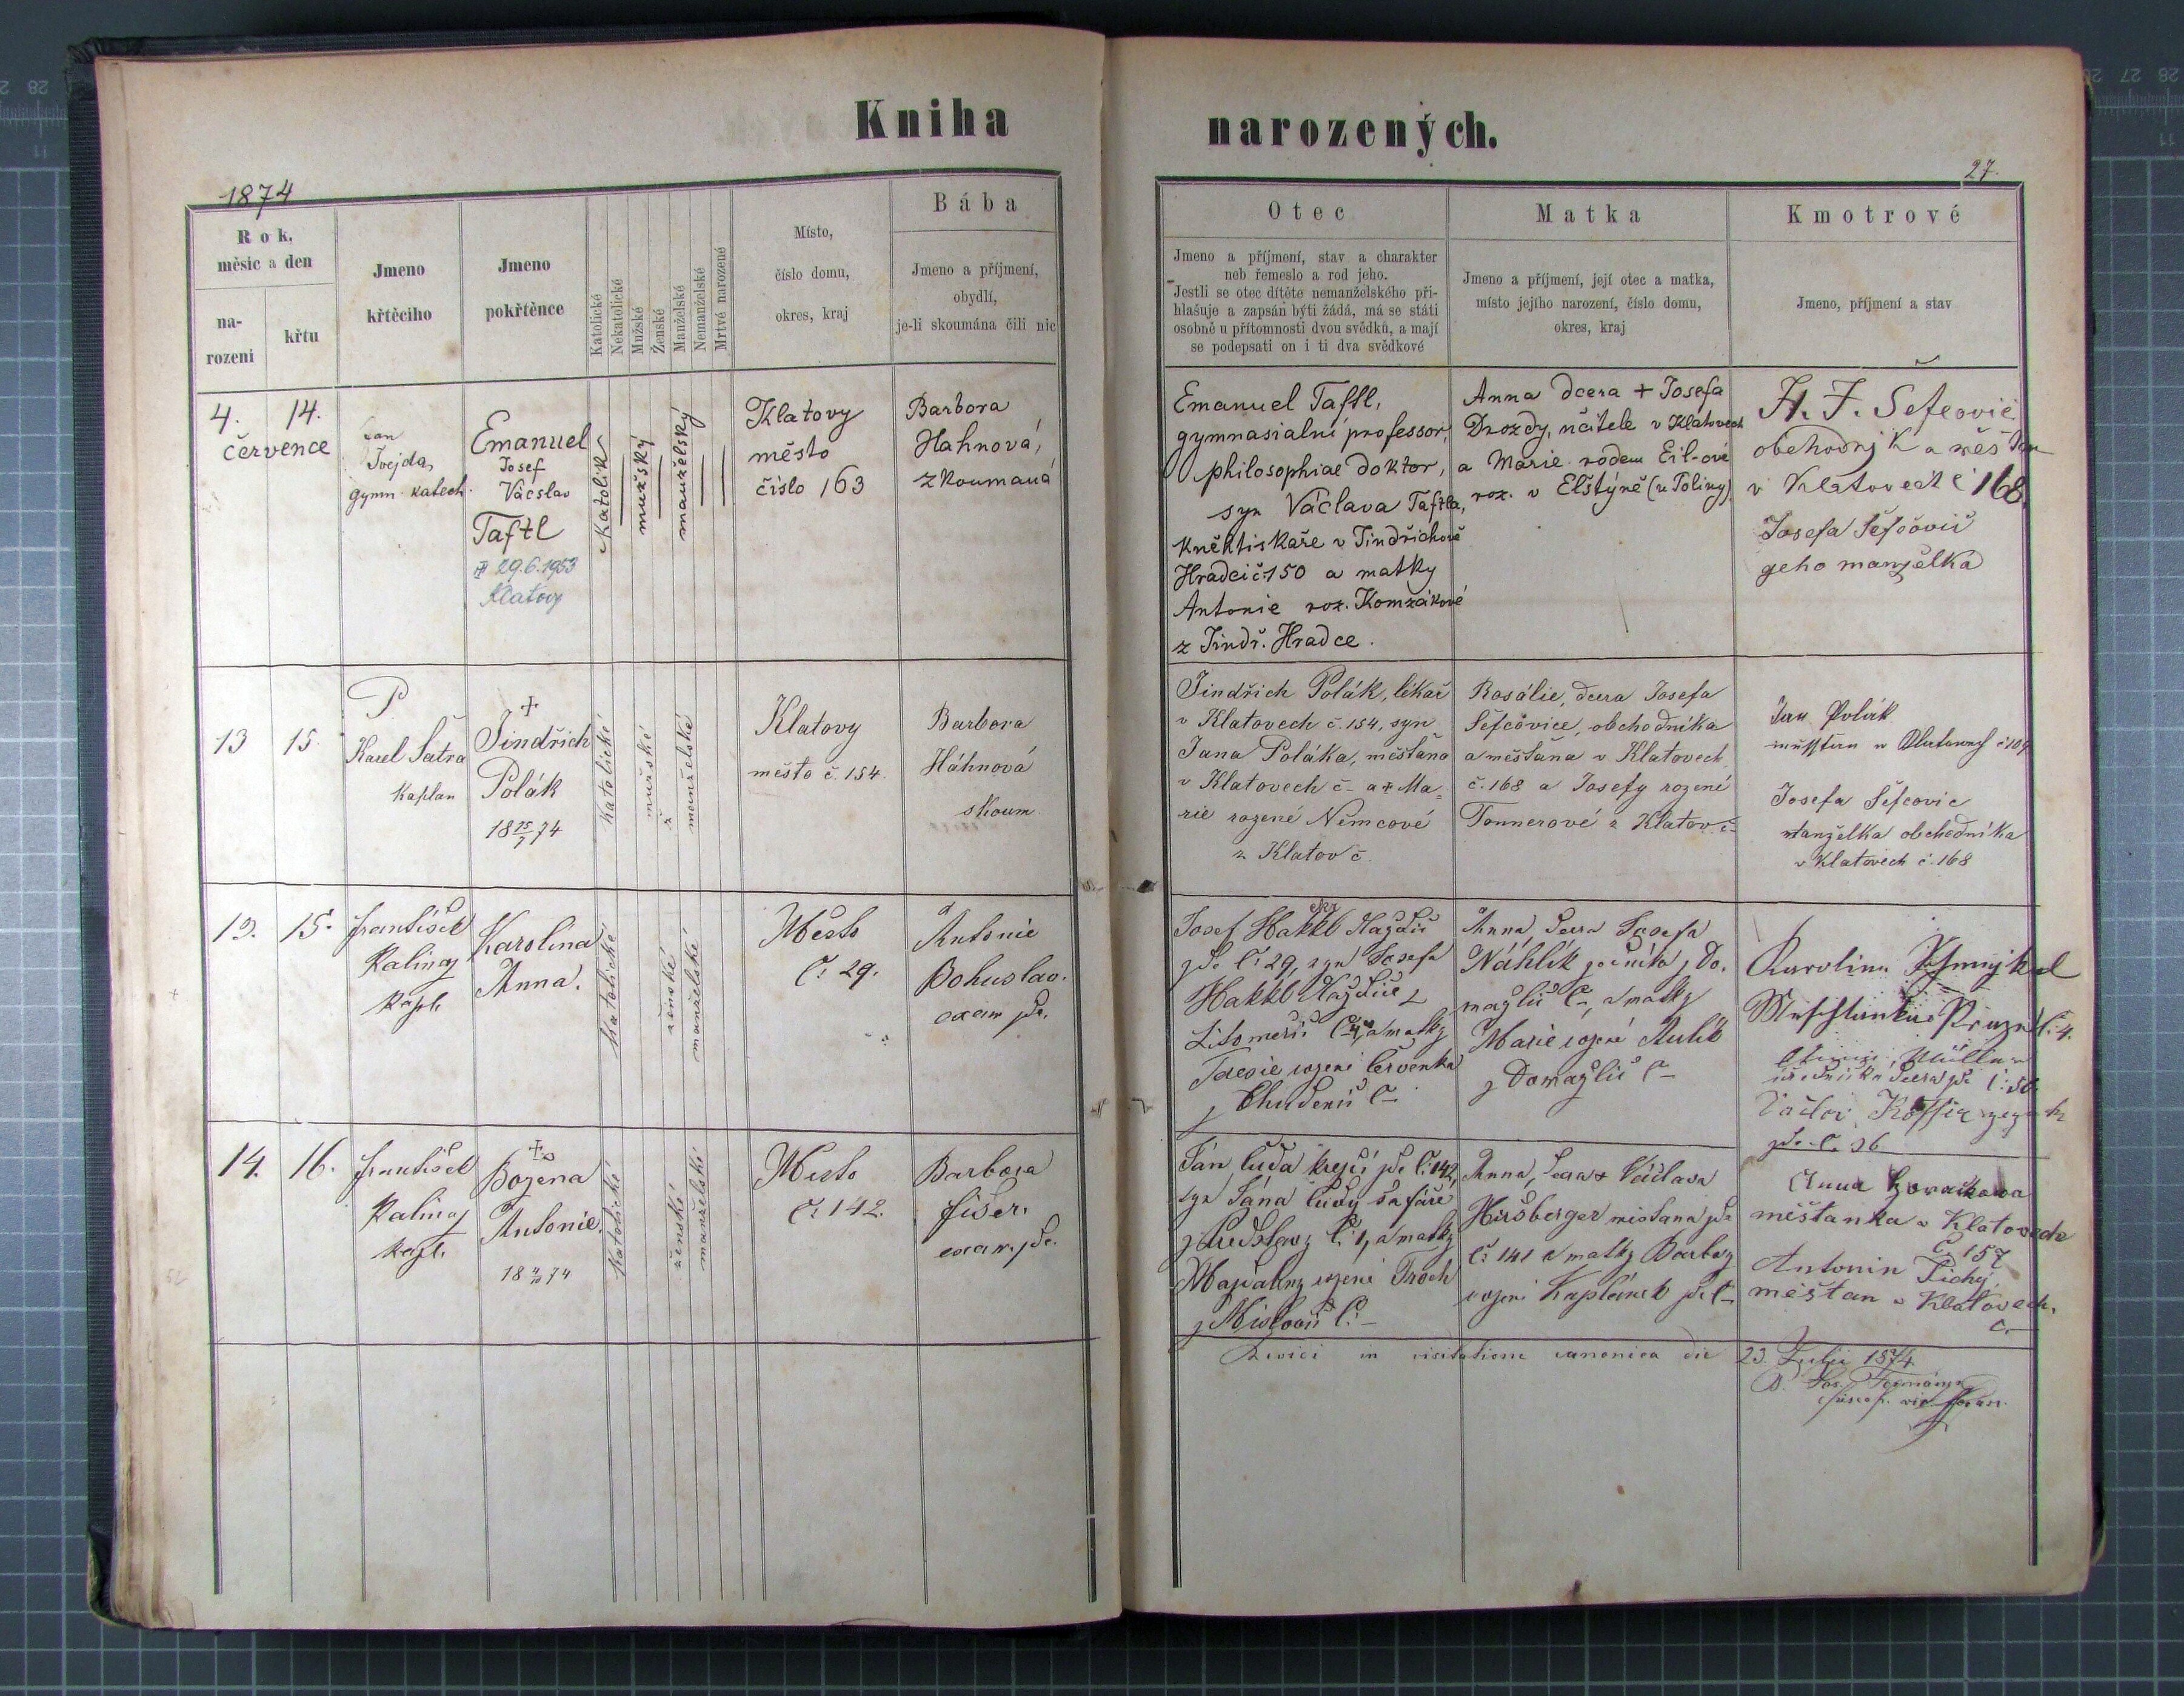 Kniha
narozených.
27.
1874
Rok,
měsíc a den
na-
rozeni
křtu
Jmeno
křtěciho
Jmeno
pokřtěnce
Katolické
Nekatolické
Mužské
Ženské
Manželské
Nemanželské
Mrtvé narozené
Místo,
číslo domu,
okres, kraj
Bába
Jmeno a příjmení,
obydlí,
je-li skoumána čili nic
Otec
Jmeno a příjmení, stav a charakter
neb řemeslo a rod jeho.
Jestli se otec dítěte nemanželského při-
hlašuje a zapsán býti žádá, má se státi
osobně u přítomnosti dvou svědků, a mají
se podepsati on i ti dva svědkové
Matka
Jmeno a příjmení, její otec a matka,
místo jejího narození, číslo domu,
okres, kraj
Kmotrové
Jmeno, příjmení a stav
4. 14.
července
Jan
Švejda,
gymn. katech.
Emanuel
Josef
Václav
Taftl
29.6.1953
Klatovy
Katolík
mužský
manželský
Klatovy
město
číslo 163
Barbora
Hahnová,
zkoumaná
Emanuel Taftl,
gymnasialní professor,
philosophiae doktor,
syn Václava Taftla,
kněhtiskaře v Jindřichově
Hradci č. 150 a matky
Antonie roz. Komzákové
z Jindř. Hradce.
Anna dcera + Josefa
Drozdy, učitele v Klatovech
a Marie rodem Eil-ové
roz. v Elštýně (u Toliny)
Šefcovic
obchodnjk a
v Klatovech č 168
Josefa Šefčovic
geho manželka
13 15
P
Karel Šatra
kaplan
+
Jindřich
Polák
18 15/7 74
katolické
mužské
manželské
Klatovy
město č. 154.
Barbora
Háhnová
skoum
Jindřich Polák, lékař
v Klatovech č. 154, syn
Jana Poláka, měšťana
v Klatovech č - a + Ma=
rie rozené Němcové
z Klatov č.
Rosálie, dcera Josefa
Šefcovice, obchodníka
a měšťana v Klatovech
č. 168 a Josefy rozené
Tonnerové z Klatov č-
Jan Polák
Josefa Šefcovic
manželka obchodníka
v Klatovech č. 168
13. 15.
František
Kalinaj
kapl.
Karolina
Anna.
katolické
ženské
manželské
Město
č. 29.
Antonie
Bohuslav.
exam zde.
Josef Hakkl
zde č. 29, syn Josefa
Hakkl
č. 4, a matky
Terezie rozené Červenka
z Chudenic č -
Anna, dcera Josefa
Náhlík z Do.
mažlic č - a matky
Marie rozené
z Domažlic č -
Karolina
č. 4.
zde č. 36
14. 16.
František
Kalinaj
kapl.
+
Božena
Antonie.
18 74
katolické
ženské
manželské
Město
č. 142.
Barbora
Fišer.
exam. zde.
Ján Luďa krejčí zde č. 142,
syn Jána Ludy šafáře
č. 1, a matky
Majdaleny rozené Troch
č. -
Anna, dcera + Václava
Hiršberger měšťana zde
č. 141 a matky Barbory
rozené Kaplánek zde č -
Anna
měšťanka v Klatovech
č. 157
Antonin Tichý
měšťan v Klatovech.
č. -
in visitatione canonica die 23. Julii 1874